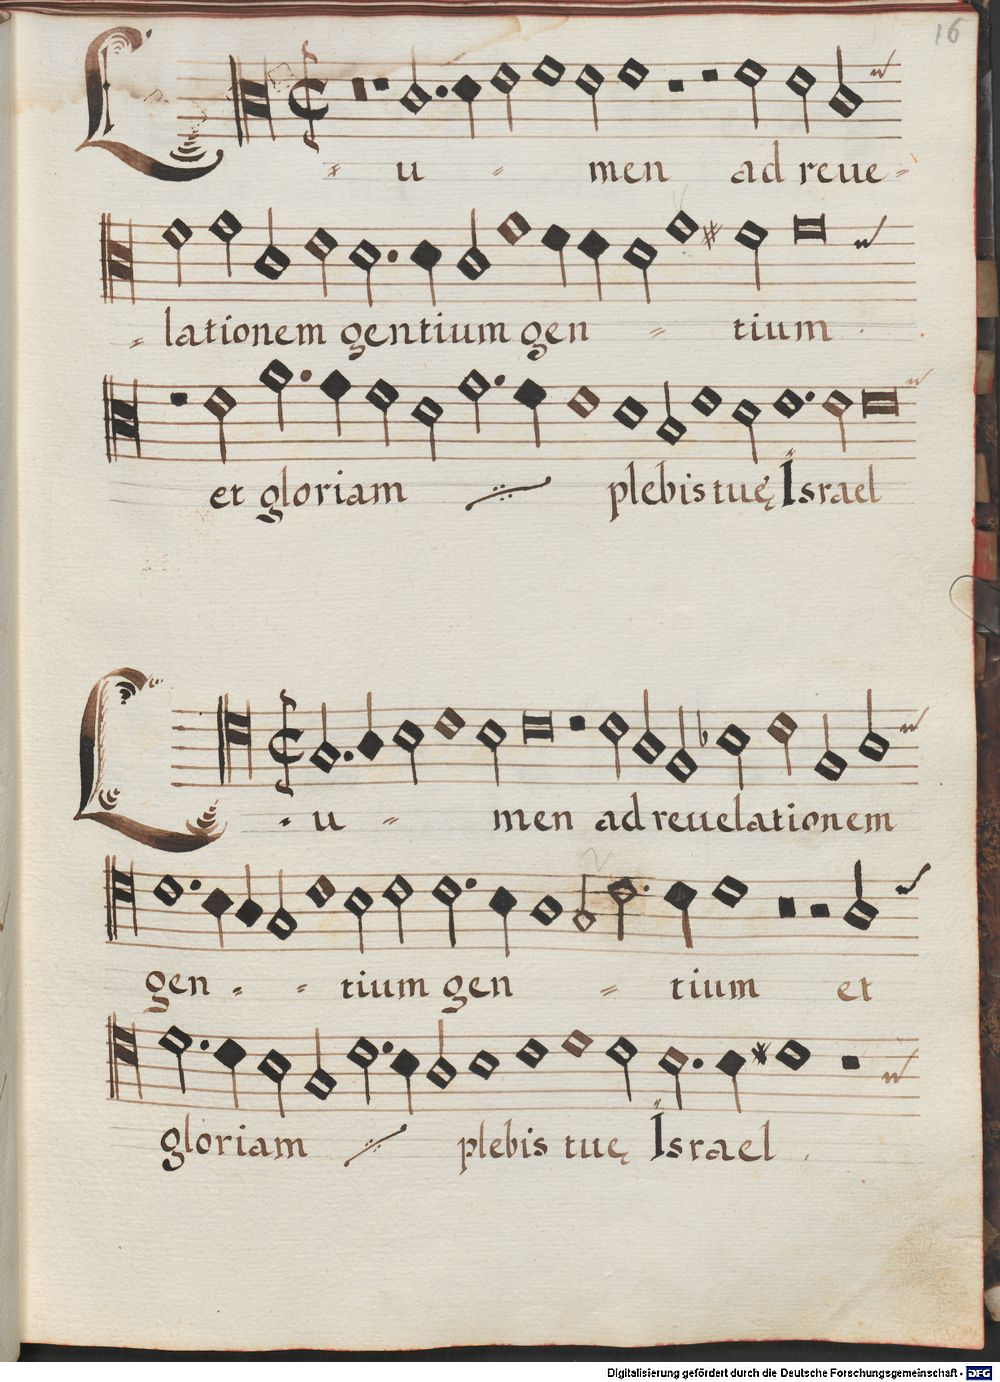 16
L u men ad reue-
-lationem gentium gen - tium
et gloriam plebis tuę Israel
L u - men ad reuelationem
gen - - tium gen - tium et
gloriam plebis tuę Israel
Digitalisierung gefördert durch die Deutsche Forschungsgemeinschaft - DFG